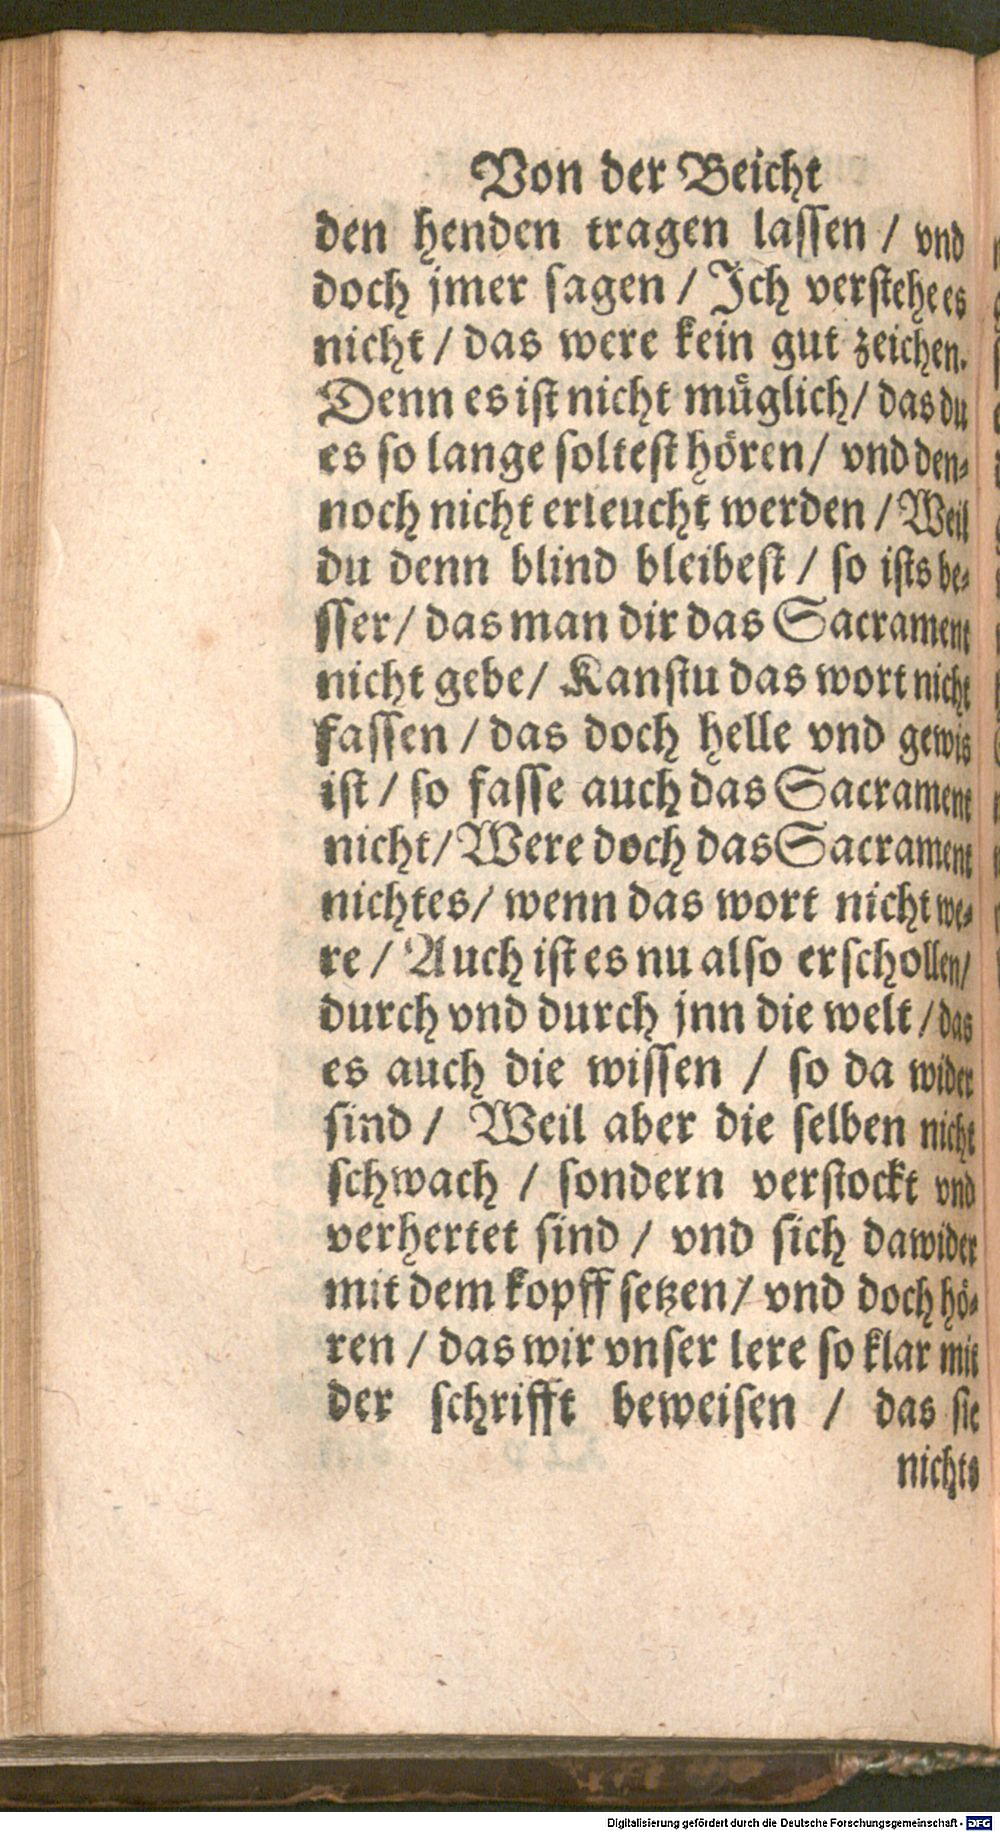 Von der Beicht
den henden tragen laſſen / vnd
doch jmer ſagen / Jch verſtehe es
nicht / das were kein gut zeichen.
Denn es iſt nicht müglich / das du
es ſo lange ſolteſt hören / vnd den-
noch nicht erleucht werden / Weil
du denn blind bleibeſt / ſo iſts be-
ſſer / das man dir das Sacrament
nicht gebe / Kanſtu das wort nicht
faſſen / das doch helle vnd gewis
iſt / ſo faſſe auch das Sacrament
nicht / Were doch das Sacrament
nichtes / wenn das wort nicht we-
re / Auch iſt es nu alſo erſchollen /
durch vnd durch jnn die welt / das
es auch die wiſſen / ſo da wider
ſind / Weil aber die ſelben nicht
ſchwach / ſondern verſtockt vnd
verhertet ſind / vnd ſich dawider
mit dem kopff ſetzen / vnd doch hö-
ren / das wir vnſer lere ſo klar mit
der ſchrifft beweiſen / das ſie
nichts
Digitalisierung gefördert durch die Deutsche Forschungsgemeinschaft - DFG